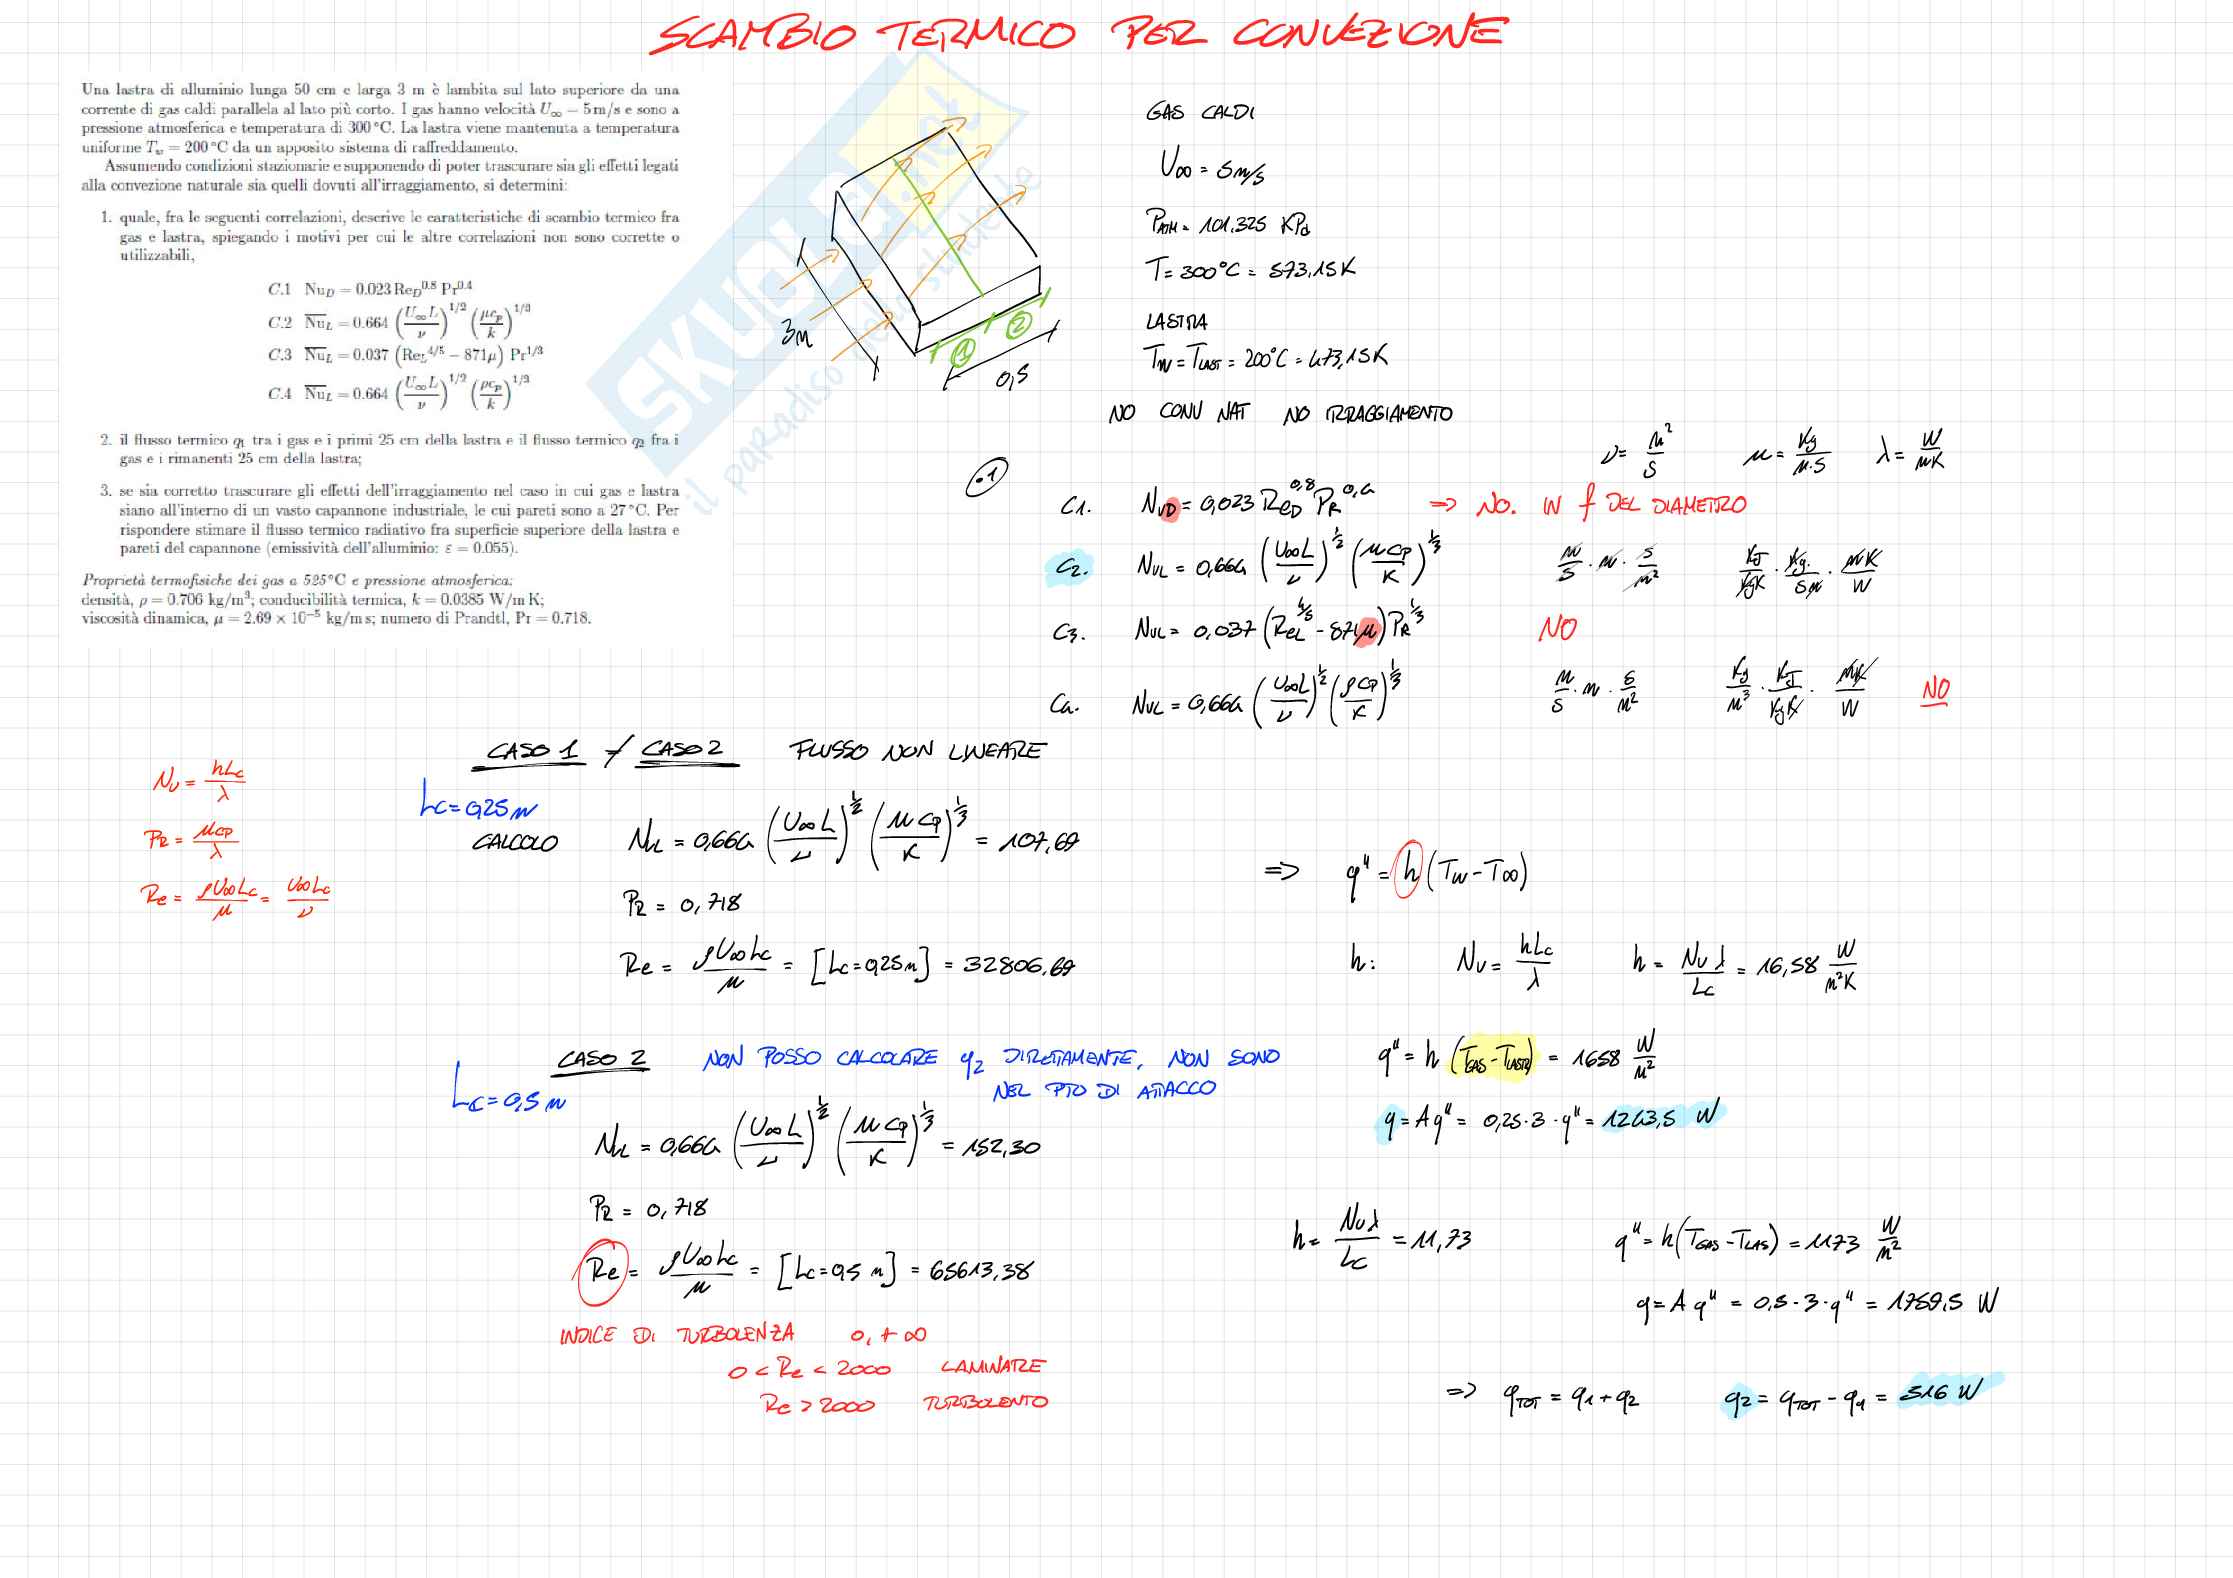 SCAMBIO TERMICO PER CONVEZIONE
Una lastra di alluminio lunga 50 cm e larga 3 m è lambita sul lato superiore da una
corrente di gas caldi parallela al lato più corto. I gas hanno velocità U∞ = 5 m/s e sono a
pressione atmosferica e temperatura di 300 °C. La lastra viene mantenuta a temperatura
uniforme T_w = 200 °C da un apposito sistema di raffreddamento.
Assumendo condizioni stazionarie e supponendo di poter trascurare sia gli effetti legati
alla convezione naturale sia quelli dovuti all'irraggiamento, si determini:
1. quale, fra le seguenti correlazioni, descrive le caratteristiche di scambio termico fra
gas e lastra, spiegando i motivi per cui le altre correlazioni non sono corrette o
utilizzabili,
C.1 Nu_D = 0.023 Re_D^0.8 Pr^0.4
C.2 Nu_L = 0.664 (U∞L/ν)^1/2 (μc_p/k)^1/3
C.3 Nu_L = 0.037 (Re_L^4/5 − 871μ) Pr^1/3
C.4 Nu_L = 0.664 (U∞L/ν)^1/2 (ρc_p/k)^1/3
2. il flusso termico q1 tra i gas e i primi 25 cm della lastra e il flusso termico q2 fra i
gas e i rimanenti 25 cm della lastra;
3. se sia corretto trascurare gli effetti dell'irraggiamento nel caso in cui gas e lastra
siano all'interno di un vasto capannone industriale, le cui pareti sono a 27 °C. Per
rispondere stimare il flusso termico radiativo fra superficie superiore della lastra e
pareti del capannone (emissività dell'alluminio: ε = 0.055).
Proprietà termofisiche dei gas a 525°C e pressione atmosferica:
densità, ρ = 0.706 kg/m³; conducibilità termica, k = 0.0385 W/m K;
viscosità dinamica, μ = 2.69 × 10⁻⁵ kg/m s; numero di Prandtl, Pr = 0.718.
SKUOLA.net
il paradiso dello studente
3m
1
2
0,5
GAS CALDI
U∞ = 5m/s
PATM = 101.325 KPa
T = 300°C = 573,15K
LASTRA
TW = TLAST = 200°C = 473,15K
NO CONV NAT NO IRRAGGIAMENTO
ν = m²/s μ = Kg/m·s λ = W/mK
.1
C1. NuD = 0,023 ReD^0,8 PR^0,4 ⇒ NO. IN f DEL DIAMETRO
C2. NUL = 0,664 (U∞L/ν)^1/2 (μCP/K)^1/3 m/s · m · s/m² KJ/KgK · Kg/sm · mK/W
C3. NUL = 0,037 (ReL^4/5 - 871μ) PR^1/3 NO
C4. NUL = 0,664 (U∞L/ν)^1/2 (ρCP/K)^1/3 m/s · m · s/m² Kg/m³ · KJ/KgK · mK/W NO
CASO 1 ≠ CASO 2 FLUSSO NON LINEARE
NU = hLc/λ
PR = μCP/λ
Re = ρU∞Lc/μ = U∞Lc/ν
LC = 0,25 m
CALCOLO NUL = 0,664 (U∞L/ν)^1/2 (μCP/K)^1/3 = 107,69
PR = 0,718
Re = ρU∞Lc/μ = [Lc = 0,25m] = 32806,69
⇒ q" = h (TW - T∞)
h: NU = hLc/λ h = NUλ/Lc = 16,58 W/m²K
q" = h (TGAS - TLASTR) = 1658 W/m²
q = A q" = 0,25 · 3 · q" = 1243,5 W
CASO 2 NON POSSO CALCOLARE q2 DIRETTAMENTE, NON SONO
NEL PTO DI ATTACCO
LC = 0,5 m
NUL = 0,664 (U∞L/ν)^1/2 (μCP/K)^1/3 = 152,30
PR = 0,718
Re = ρU∞Lc/μ = [Lc = 0,5 m] = 65613,38
INDICE DI TURBOLENZA 0, +∞
0 < Re < 2000 LAMINARE
Re > 2000 TURBOLENTO
h = NUλ/Lc = 11,73 q" = h(TGAS - TLAS) = 1173 W/m²
q = A q" = 0,5 · 3 · q" = 1759,5 W
⇒ qTOT = q1 + q2 q2 = qTOT - q1 = 516 W